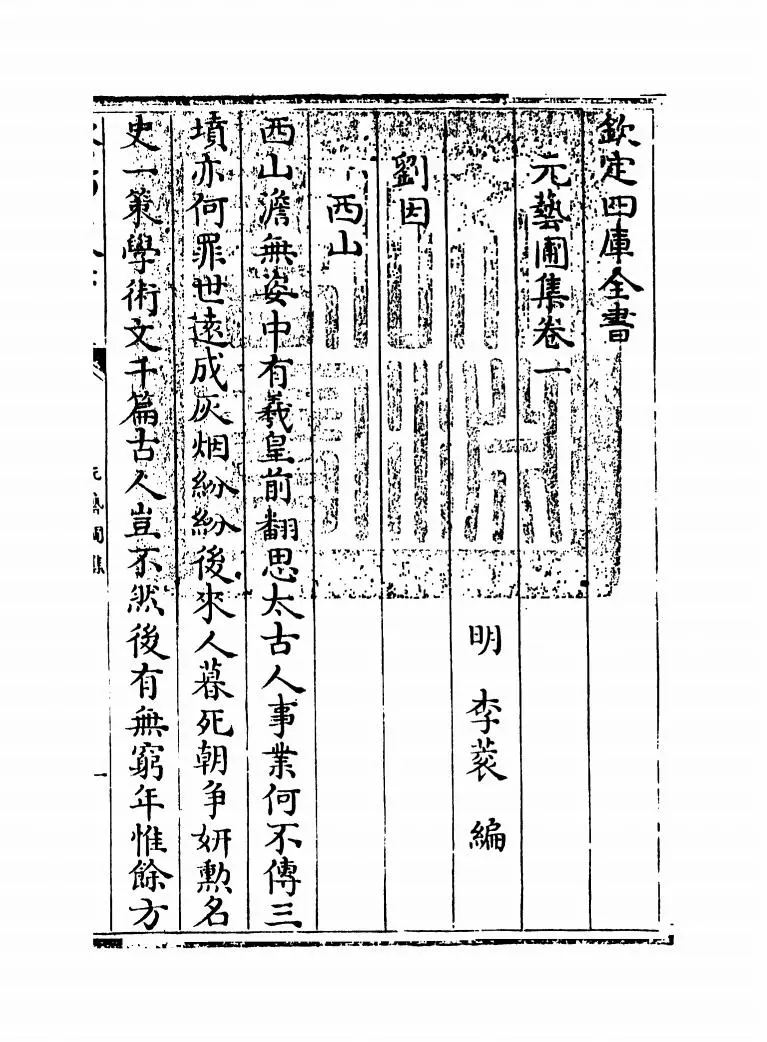 欽定四庫全書
元藝圃集卷一
明 李蓘 編
劉因
西山
西山澹無姿中有羲皇前翻思太古人事業何不傳三
墳亦何罪世逺成灰烟紛紛後來人暮死朝争妍勲名
史一策學術文千篇古人豈不然後有無窮年惟餘方
元藝圃集
一